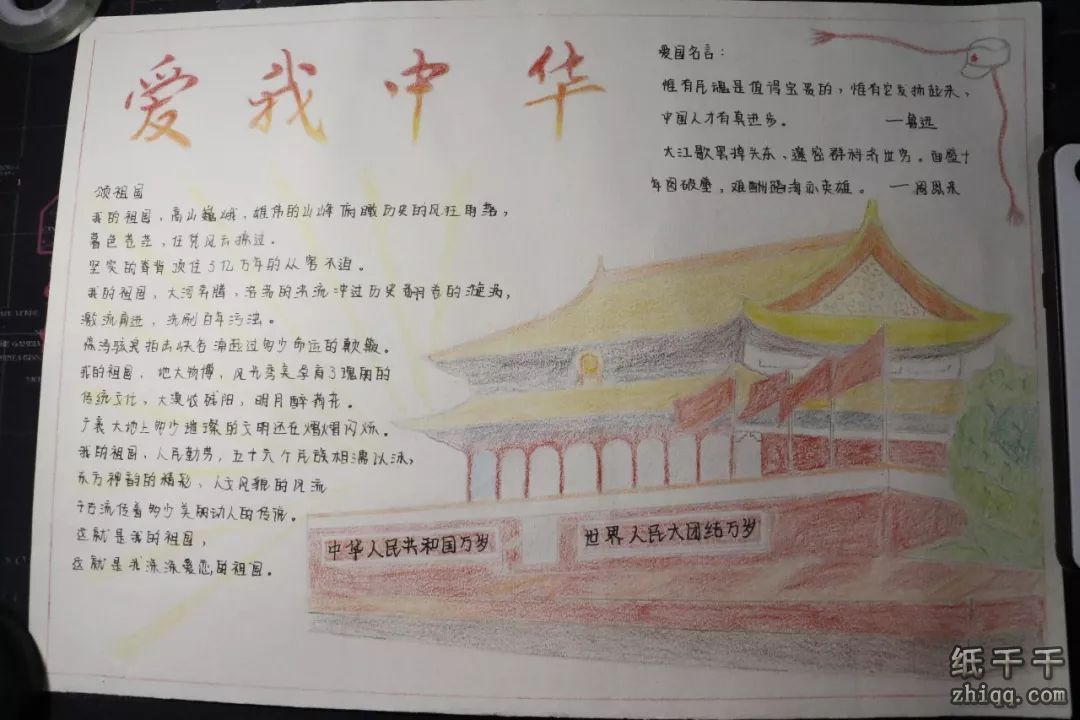 爱我中华
爱国名言：
惟有民魂是值得宝贵的，惟有它发扬起来，
中国人才有真进步。 —鲁迅
大江歌罢掉头东，邃密群科济世穷。面壁十
年图破壁，难酬蹈海亦英雄。 —周恩来
颂祖国
我的祖国，高山巍峨，雄伟的山峰俯瞰历史的风狂雨落，
暮色苍茫，任凭风云掠过。
坚实的脊背顶住了亿万年的从容不迫。
我的祖国，大河奔腾，浩荡的洪流冲过历史翻卷的漩涡，
激流勇进，洗刷百年污浊。
惊涛骇浪拍击峡谷涌起过多少命运的颠簸。
我的祖国，地大物博，风光秀美孕育了瑰丽的
传统文化，大漠收残阳，明月醉荷花。
广袤大地上多少璀璨的文明还在熠熠闪烁。
我的祖国，人民勤劳，五十六个民族相濡以沫，
东方神韵的精彩，人文风貌的风流
千古流传着多少美丽动人的传说。
这就是我的祖国，
这就是我深深爱恋的祖国。
中华人民共和国万岁
世界人民大团结万岁
纸千千
zhiqq.com